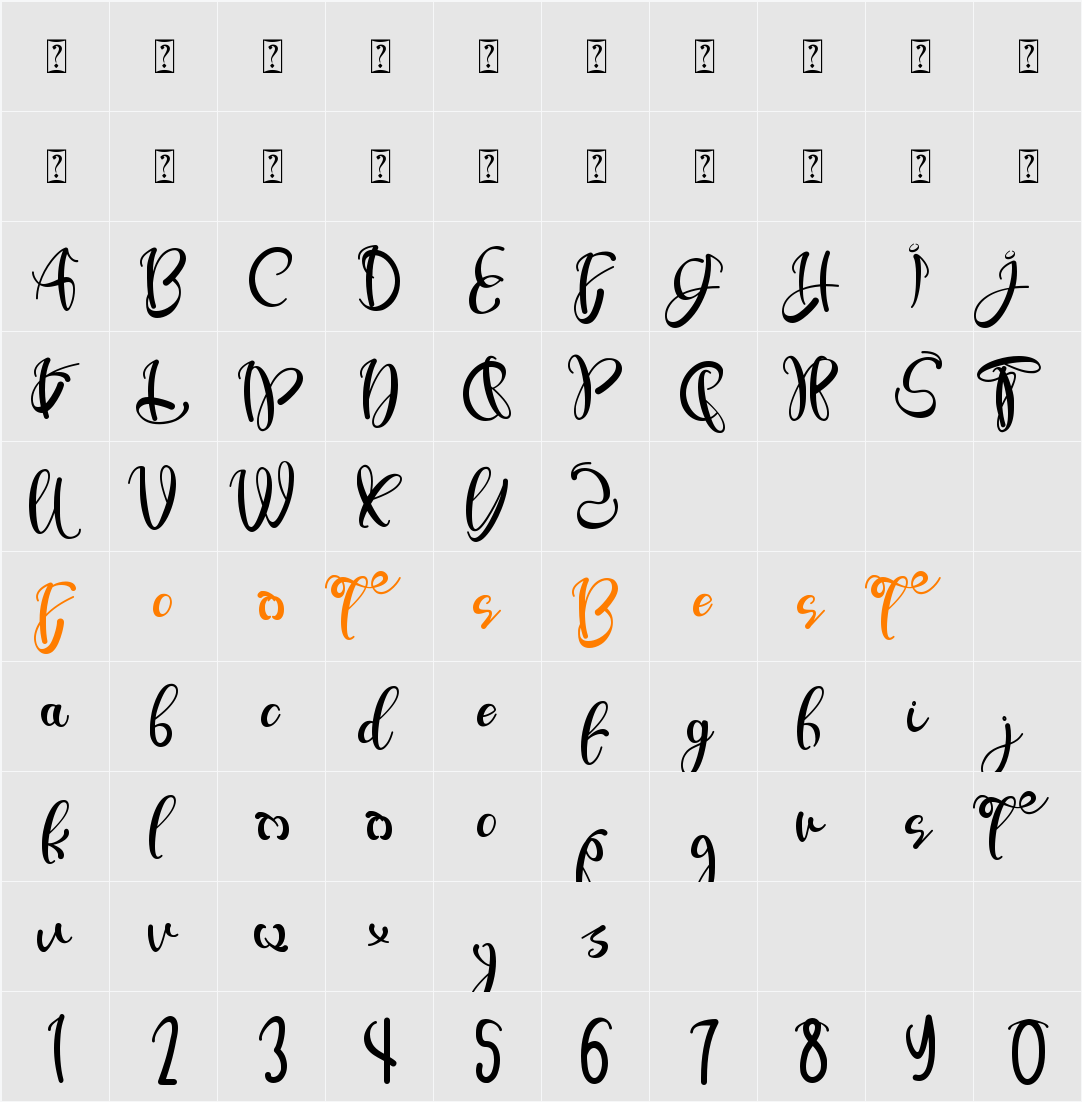 ? ? ? ? ? ? ? ? ? ?
? ? ? ? ? ? ? ? ? ?
A B C D E F G H I J
K L M N O P Q R S T
U V W X Y Z
F o n t s B e s t
a b c d e f g h i j
k l m n o p q r s t
u v w x y z
1 2 3 4 5 6 7 8 9 0